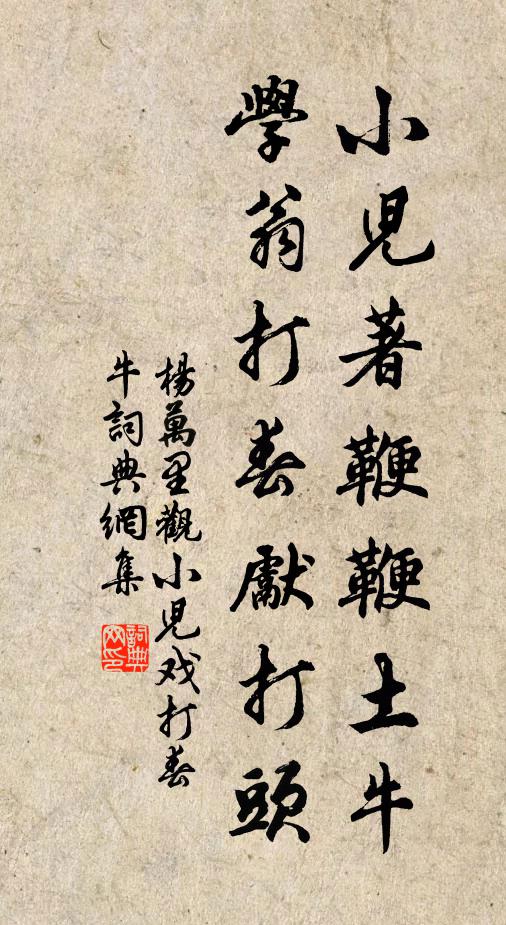 小兒著鞭鞭土牛
學翁打春獻打頭
楊萬里觀小兒戏打春
牛詞典網集
詞典
网印